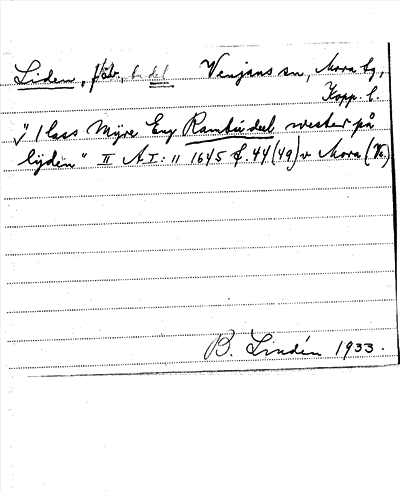 Liden, del Venjans sn, Mora tg,
Kopp. l.
"1 lass Myre Eng Rambu deel wester på
lijden" II A I: 11 1645 f. 44 (49) v Mora (Ve.)
B. Lindén 1933.